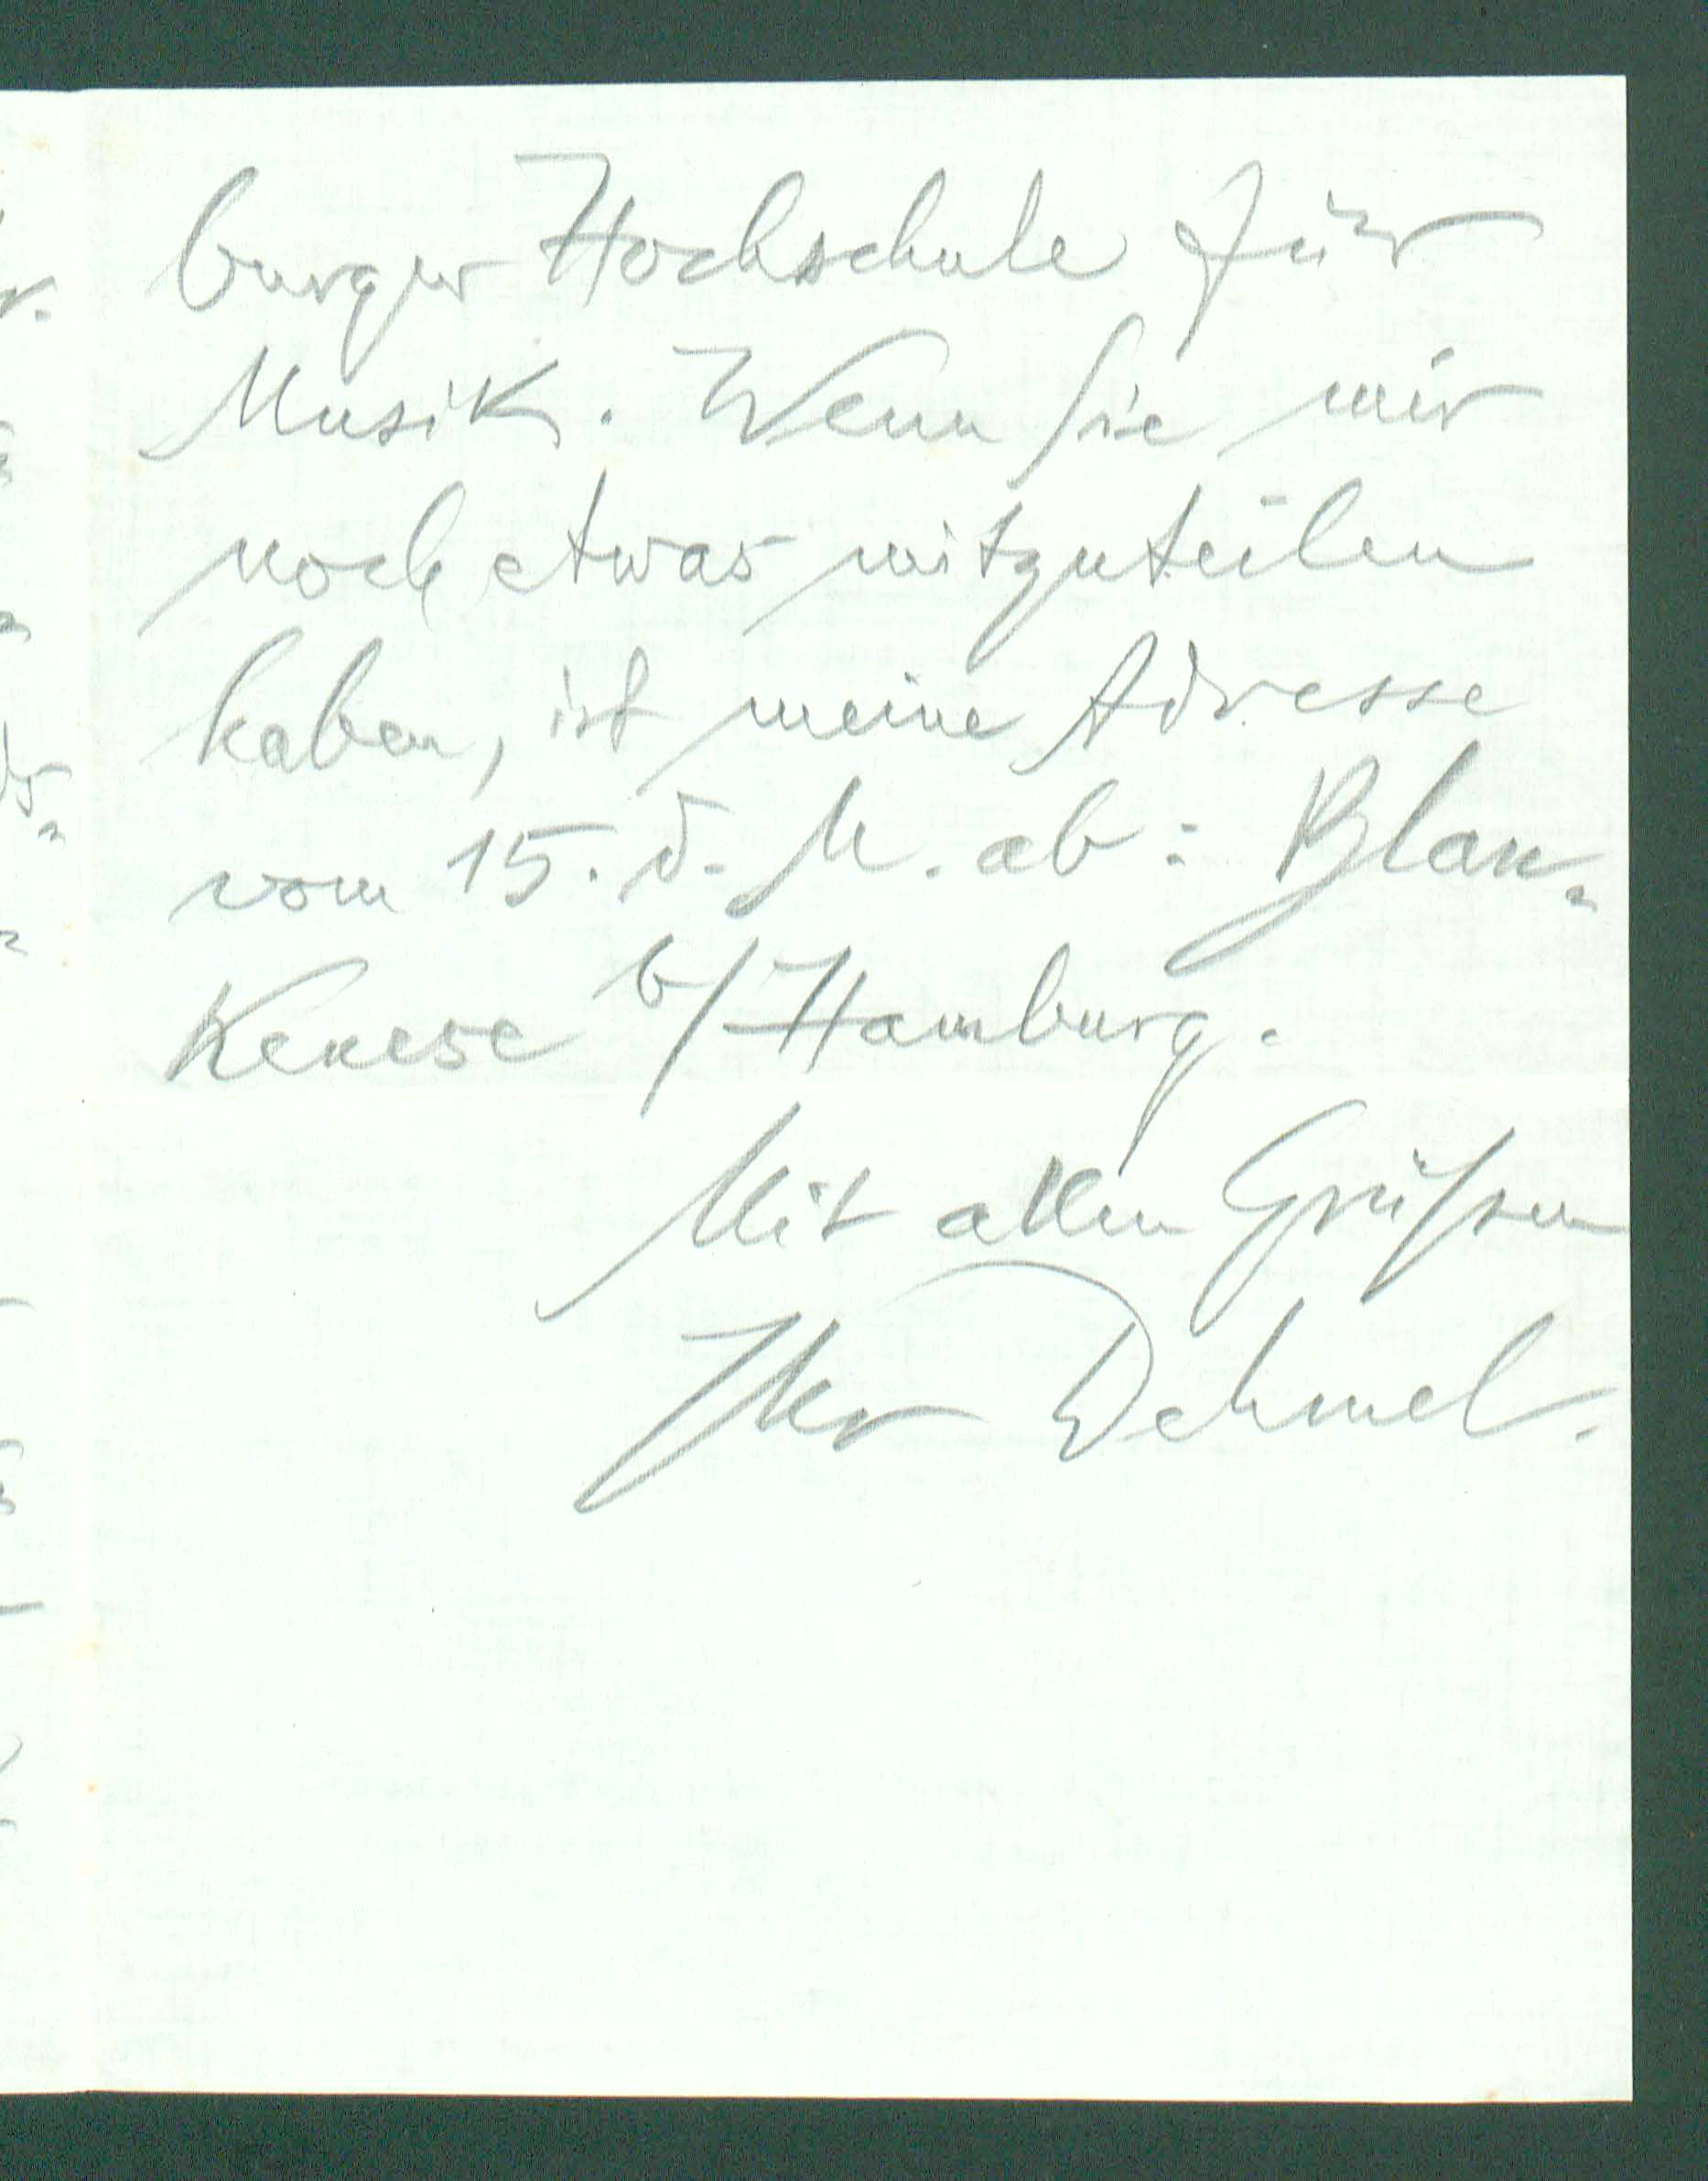 burger Hochschule für
Musik. Wenn Sie mir
noch etwas mitzuteilen
haben, ist meine Adresse
vom 15. d. M. ab: Blan-
kenese b/Hamburg.
Mit allen Grüßen
Ihr Dehmel.